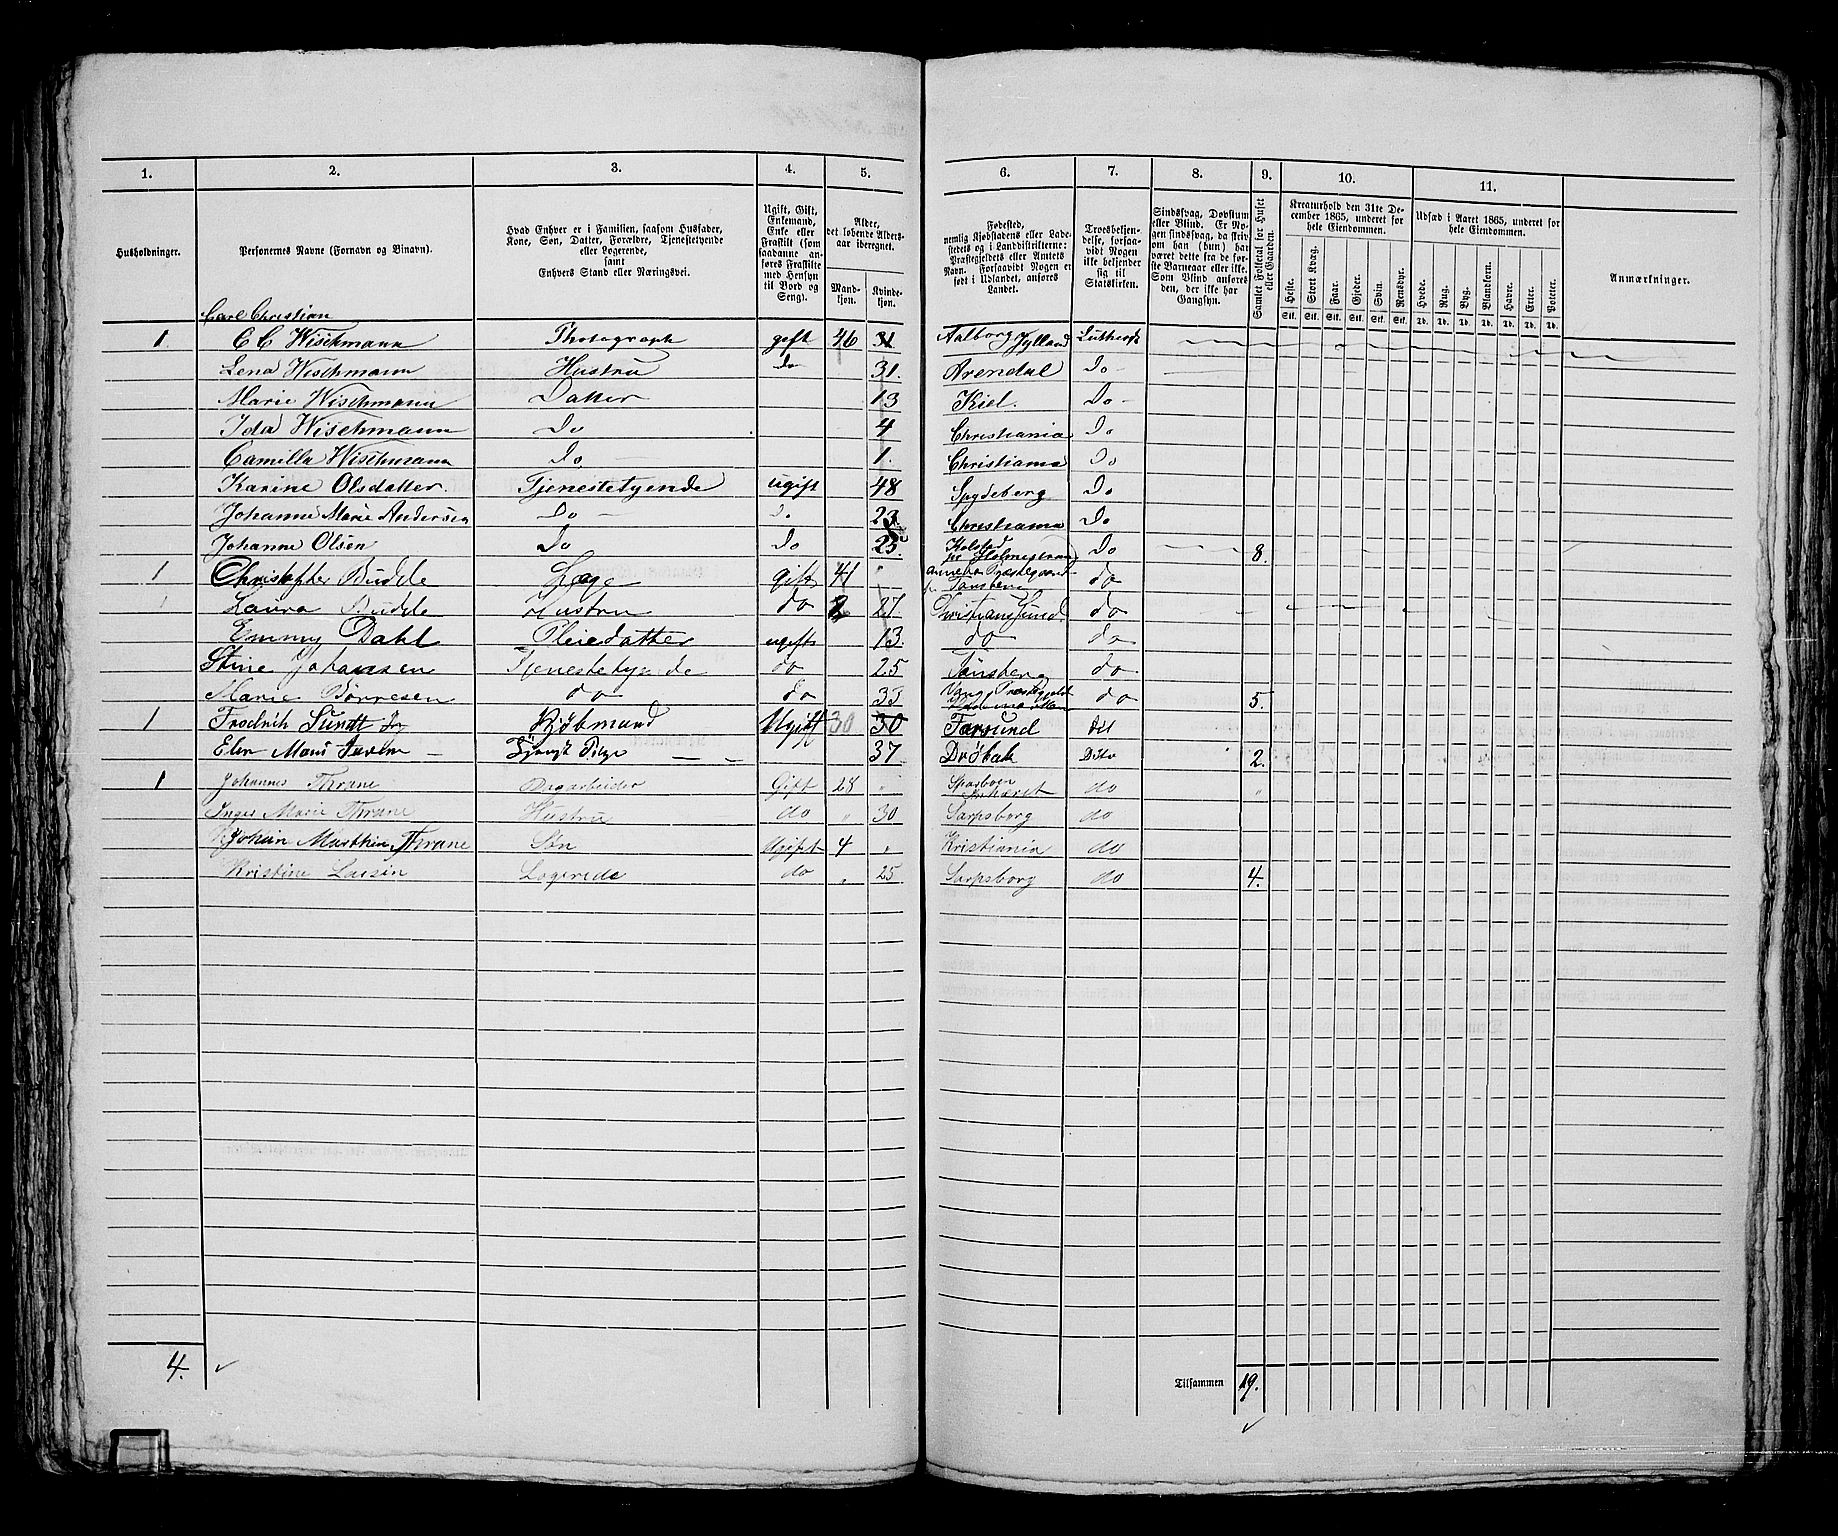 1. 2. 3. 4. 5. 6. 7. 8. 9. 10. 11.
Husholdninger.
Personernes Navne (Fornavn og Binavn).
Hvad Enhver er i Familien, saasom Husfader, Kone, Søn, Datter, Forældre, Tjenestetyende eller Logerende, samt Enhvers Stand eller Næringsvei.
Ugift, Gift, Enkemand, Enke eller Fraskilt (som saadanne anføres Fraskilte med Hensyn til Bord og Seng).
Alder, det løbende Aldersaar iberegnet.
Mandkjøn. Kvindekjøn.
Fødested, nemlig Kjøbstadens eller Ladestedets og i Landdistrikterne: Præstegjeldets eller Amtets Navn. Forsaavidt Nogen er født i Udlandet, anføres Landet.
Troesbekjendelse, forsaavidt Nogen ikke bekjender sig til Statskirken.
Sindssvag, Døvstum eller Blind. Er Nogen sindssvag, da skrives om han (hun) har været dette fra de første Barneaar eller ikke. Som Blind anføres den, der ikke har Gangsyn.
Samlet Folketal for Huset eller Gaarden.
Kreaturhold den 31te December 1865, underet for hele Eiendommen.
Heste. Stort Kvæg. Faar. Gjeder. Svin. Rensdyr.
Stk. Stk. Stk. Stk. Stk. Stk.
Udsæd i Aaret 1865, underet for hele Eiendommen.
Hvede. Rug. Byg. Blandkorn. Havre. Erter. Poteter.
Td. Td. Td. Td. Td. Td. Td.
Anmærkninger.
Carl Christian
1 C C Wischmann Photograph gift 46 31 Aalborg Jylland Luthersk
Lena Wischmann Hustru do 31. Arendal Do
Marie Wischmann Datter 13 Kiel. Do
Ida Wischmann Do 4 Christiania Do
Camilla Wischmann Do 1. Christiania Do
Karine Olsdatter. Tjenestetyende ugift 48 Spydeberg Do
Johanne Marie Andersen Do Do 23 Christiania Do
Johanne Olsen Do Do 25. Holmestrand Do 8.
1 Christopher Budde Læge gift 41 " Tønsberg do
Laura Budde Hustru do 27. Christianssund do
Emmy Dahl Pleiedatter ugift 13. do do
Stine Johansen Tjenestetyende do 25 Tønsberg do
Marie Børresen do do 33 Vang Præstegjeld do 5.
1 Fredrich Sundt Jr Kjøbmand Ugift 30 30 Farsund
Elen Marie Pige 37 Drøbak Ditto 2.
1 Johannes Thrane Bygarbeider Gift 28 " do "
Inger Marie Thrane Hustru do " 30 Sarpsborg do
Johan Marthin Thrane Søn Ugift 4 " Kristiania do
Kristine Larsen Logerede do " 25 Sarpsborg do 4.
4.
Tilsammen 19.